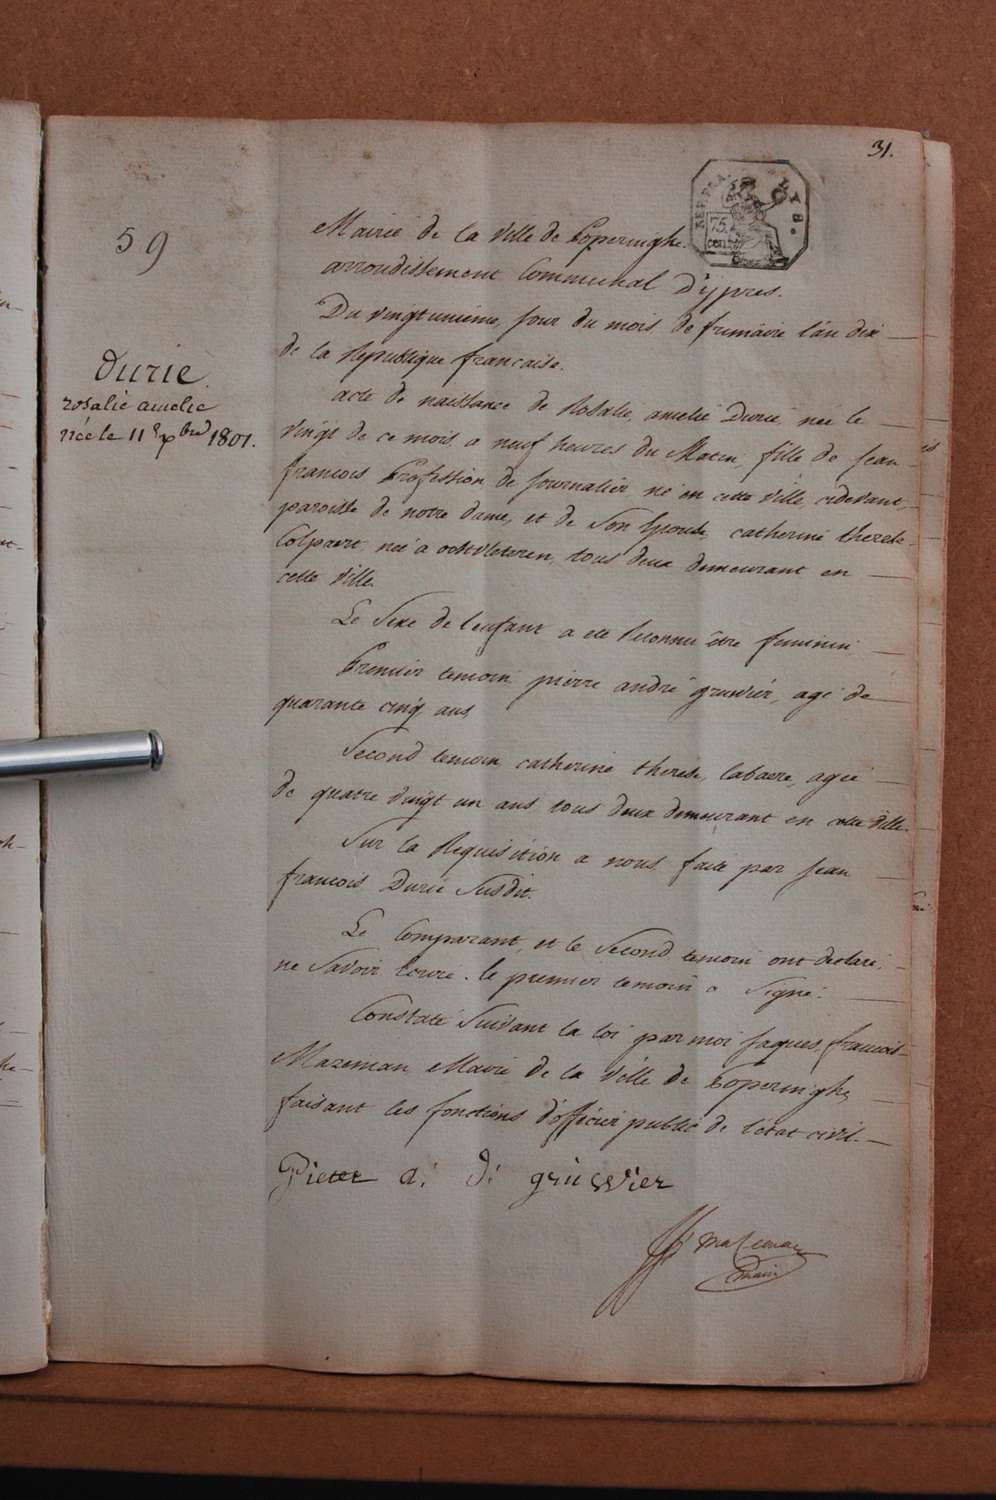 31.
REP. FRA.
75.
CENT.
59
Mairie de la ville de Poperinghe.
arrondissement Communal D'ypres.
Du vingt unieme, jour du mois de frimaire l'an dix
de la Republique francaise.
Durie
rosalie amelie
née le 11 Xbre 1801.
acte de naissance de Rosalie amelie Durie, nee le
vingt de ce mois, a neuf heures du Matin, fille de Jean
francois Profession de Journalier né en cette ville, cidevant,
paroisse de notre dame, et de Son Epouse, catherine therese
Colpaert, neé a oostvleteren, tous deux demeurant en
cette ville.
Le Sexe de l'enfant a eté Reconnu être feminin
Premier temoin, pierre andré gruwier, agé de
quarante cinq ans,
Second temoin catherine therese, labaere, agee
de quatre vingt un ans tous deux demeurant en cette ville.
Sur la Requisition a nous faite par Jean
francois Durie Susdit.
Le Comparant, et le Second temoin ont declaré,
ne Savoir Ecrire. le premier temoin a Signé.
Constaté Suivant la loi par moi Jaques, francois
Mazeman Maire de la Ville de Poperinghe,
faisant les fonctions d'officier public de l'état civil.
Pieter a: d: gruwier
Mazeman
maire